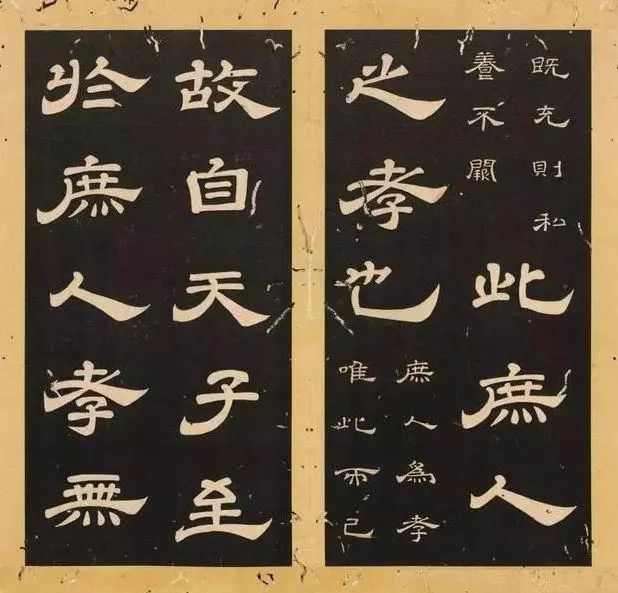 既充則私
養不闕
此庶人
之孝也
庶人爲孝
唯此而已
故自天子至
於庶人孝無